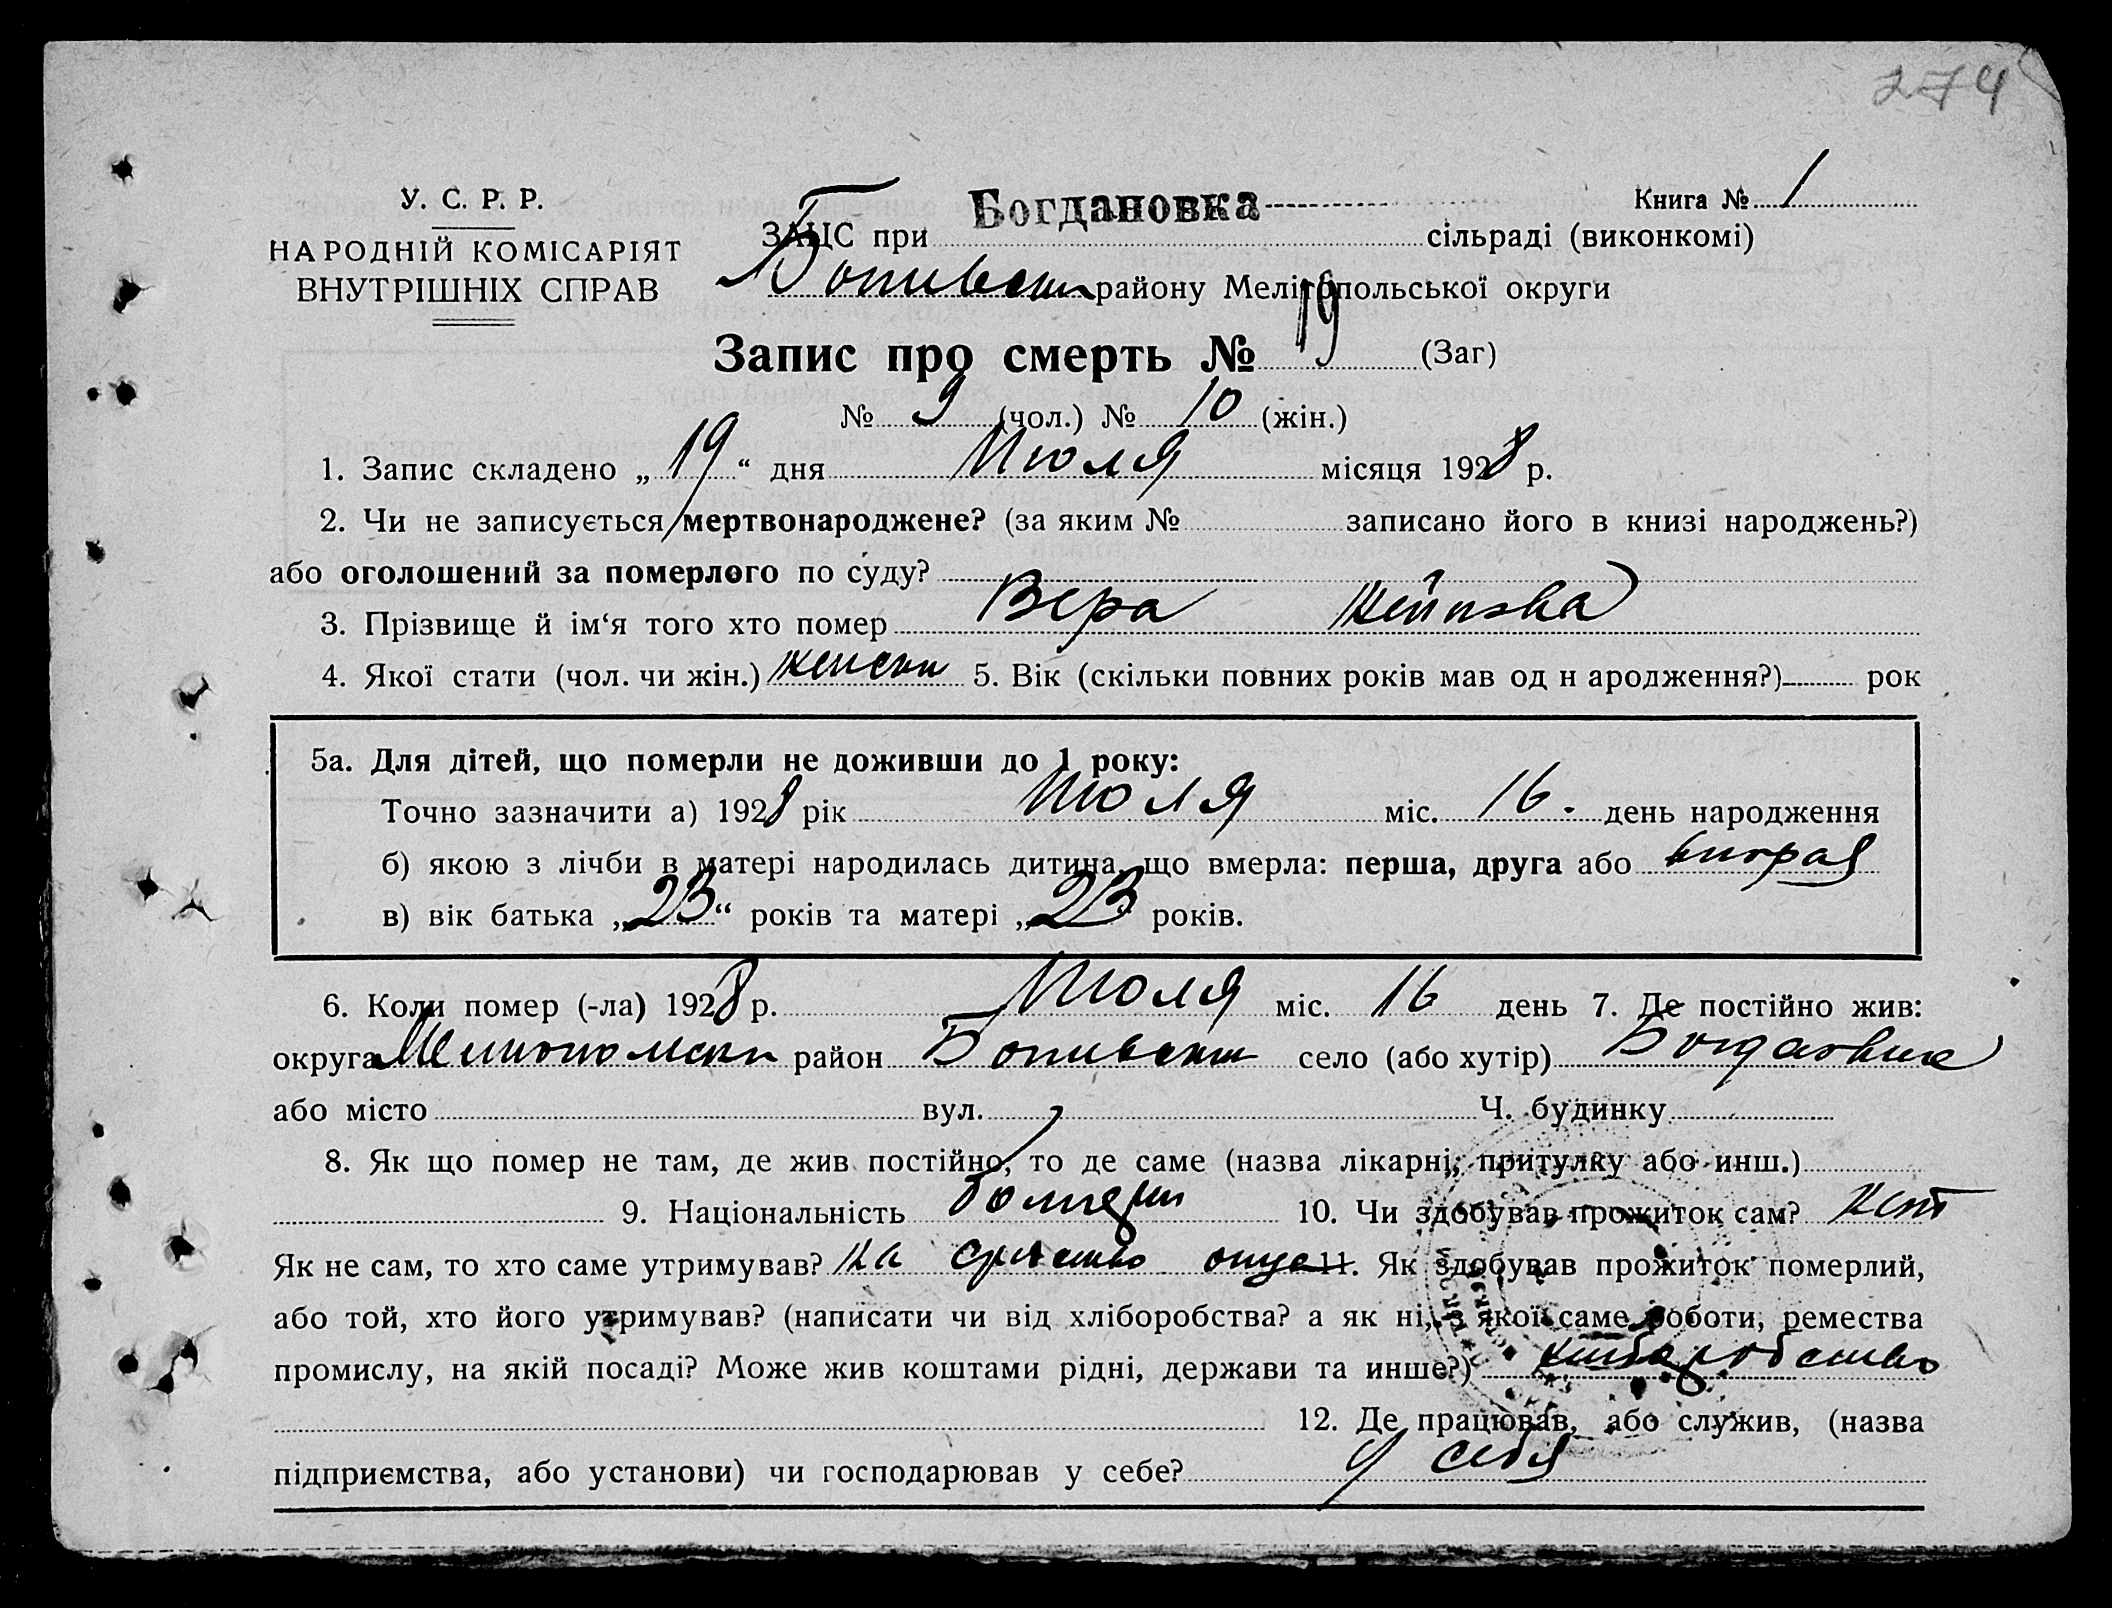 274
У. С. Р. Р.
НАРОДНІЙ КОМІСАРІЯТ
ВНУТРІШНІХ СПРАВ
Книга № 1
Богдановка
ЗАЦС при сільраді (виконкомі)
району Мелітопольської округи
Запис про смерть № 19 (Заг)
№ 9 (чол.) № 10 (жін.)
1. Запис складено „ 19 “ дня Июля місяця 1928 р.
2. Чи не записується мертвонароджене? (за яким № записано його в книзі народжень?)
або оголошений за померлого по суду?
3. Прізвище й ім‘я того хто помер Вера
4. Якої стати (чол. чи жін.) женски 5. Вік (скільки повних років мав од н ародження?) рок
5а. Для дітей, що померли не доживши до 1 року:
Точно зазначити а) 1928 рік Июля міс. 16. день народження
б) якою з лічби в матері народилась дитина, що вмерла: перша, друга або вторая
в) вік батька „ 23 “ років та матері „ 23 “ років.
6. Коли помер (-ла) 1928 р. Июля міс. 16 день 7. Де постійно жив:
округа район село (або хутір)
або місто вул. Ч. будинку
8. Як що помер не там, де жив постійно, то де саме (назва лікарні, притулку або инш.)
9. Національність 10. Чи здобував прожиток сам? нет
Як не сам, то хто саме утримував? на отца 11. Як здобував прожиток померлий,
або той, хто його утримував? (написати чи від хліборобства? а як ні, з якої саме роботи, ремества
промислу, на якій посаді? Може жив коштами рідні, держави та инше?)
12. Де працював, або служив, (назва
підприємства, або установи) чи господарював у себе? у себя